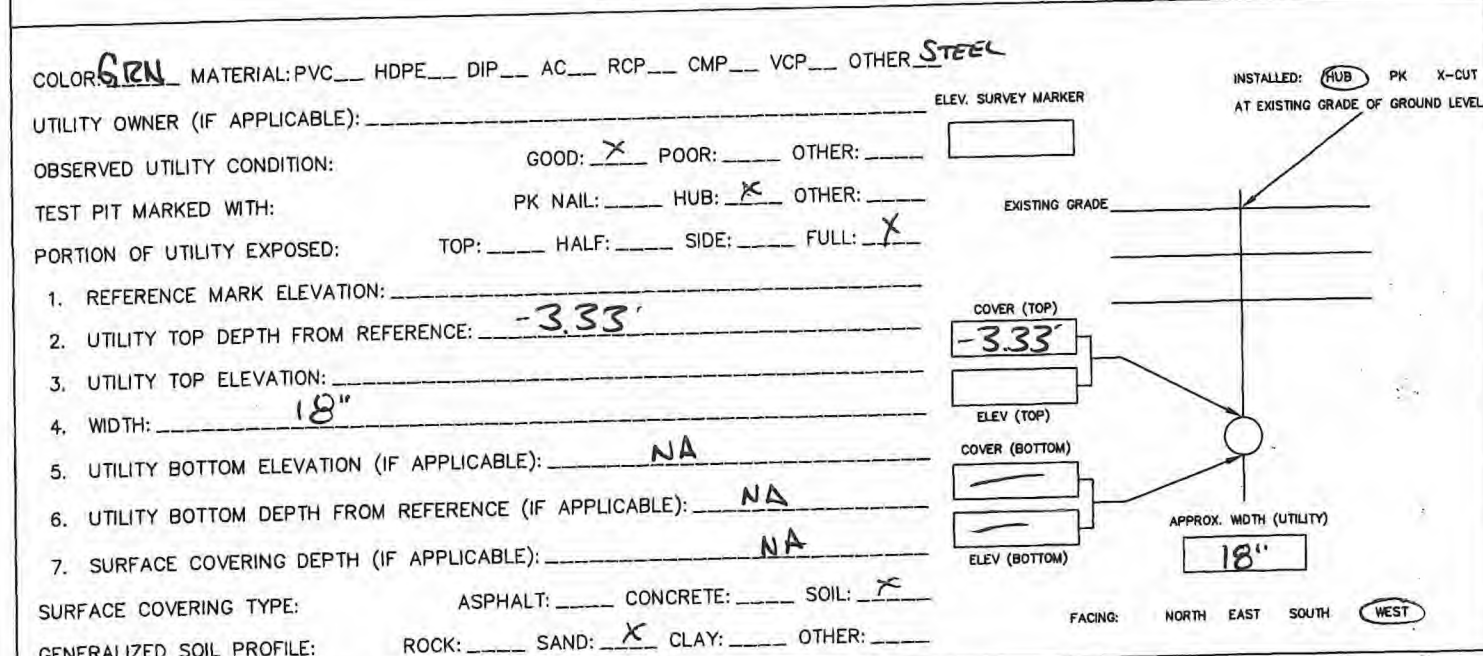 COLOR: GRN MATERIAL: PVC__ HDPE__ DIP__ AC__ RCP__ CMP__ VCP__ OTHER STEEL
UTILITY OWNER (IF APPLICABLE): ____
OBSERVED UTILITY CONDITION: GOOD: X POOR: ____ OTHER: ____
TEST PIT MARKED WITH: PK NAIL: ____ HUB: X OTHER: ____
PORTION OF UTILITY EXPOSED: TOP: ____ HALF: ____ SIDE: ____ FULL: X
1. REFERENCE MARK ELEVATION: ____
2. UTILITY TOP DEPTH FROM REFERENCE: -3.33'
3. UTILITY TOP ELEVATION: ____
4. WIDTH: 18"
5. UTILITY BOTTOM ELEVATION (IF APPLICABLE): NA
6. UTILITY BOTTOM DEPTH FROM REFERENCE (IF APPLICABLE): NA
7. SURFACE COVERING DEPTH (IF APPLICABLE): NA
SURFACE COVERING TYPE: ASPHALT: ____ CONCRETE: ____ SOIL: X
GENERALIZED SOIL PROFILE: ROCK: ____ SAND: X CLAY: ____ OTHER: ____
ELEV. SURVEY MARKER
INSTALLED: HUB PK X-CUT
AT EXISTING GRADE OF GROUND LEVEL
EXISTING GRADE
COVER (TOP)
-3.33'
ELEV (TOP)
COVER (BOTTOM)
—
—
ELEV (BOTTOM)
APPROX. WIDTH (UTILITY)
18"
FACING: NORTH EAST SOUTH WEST